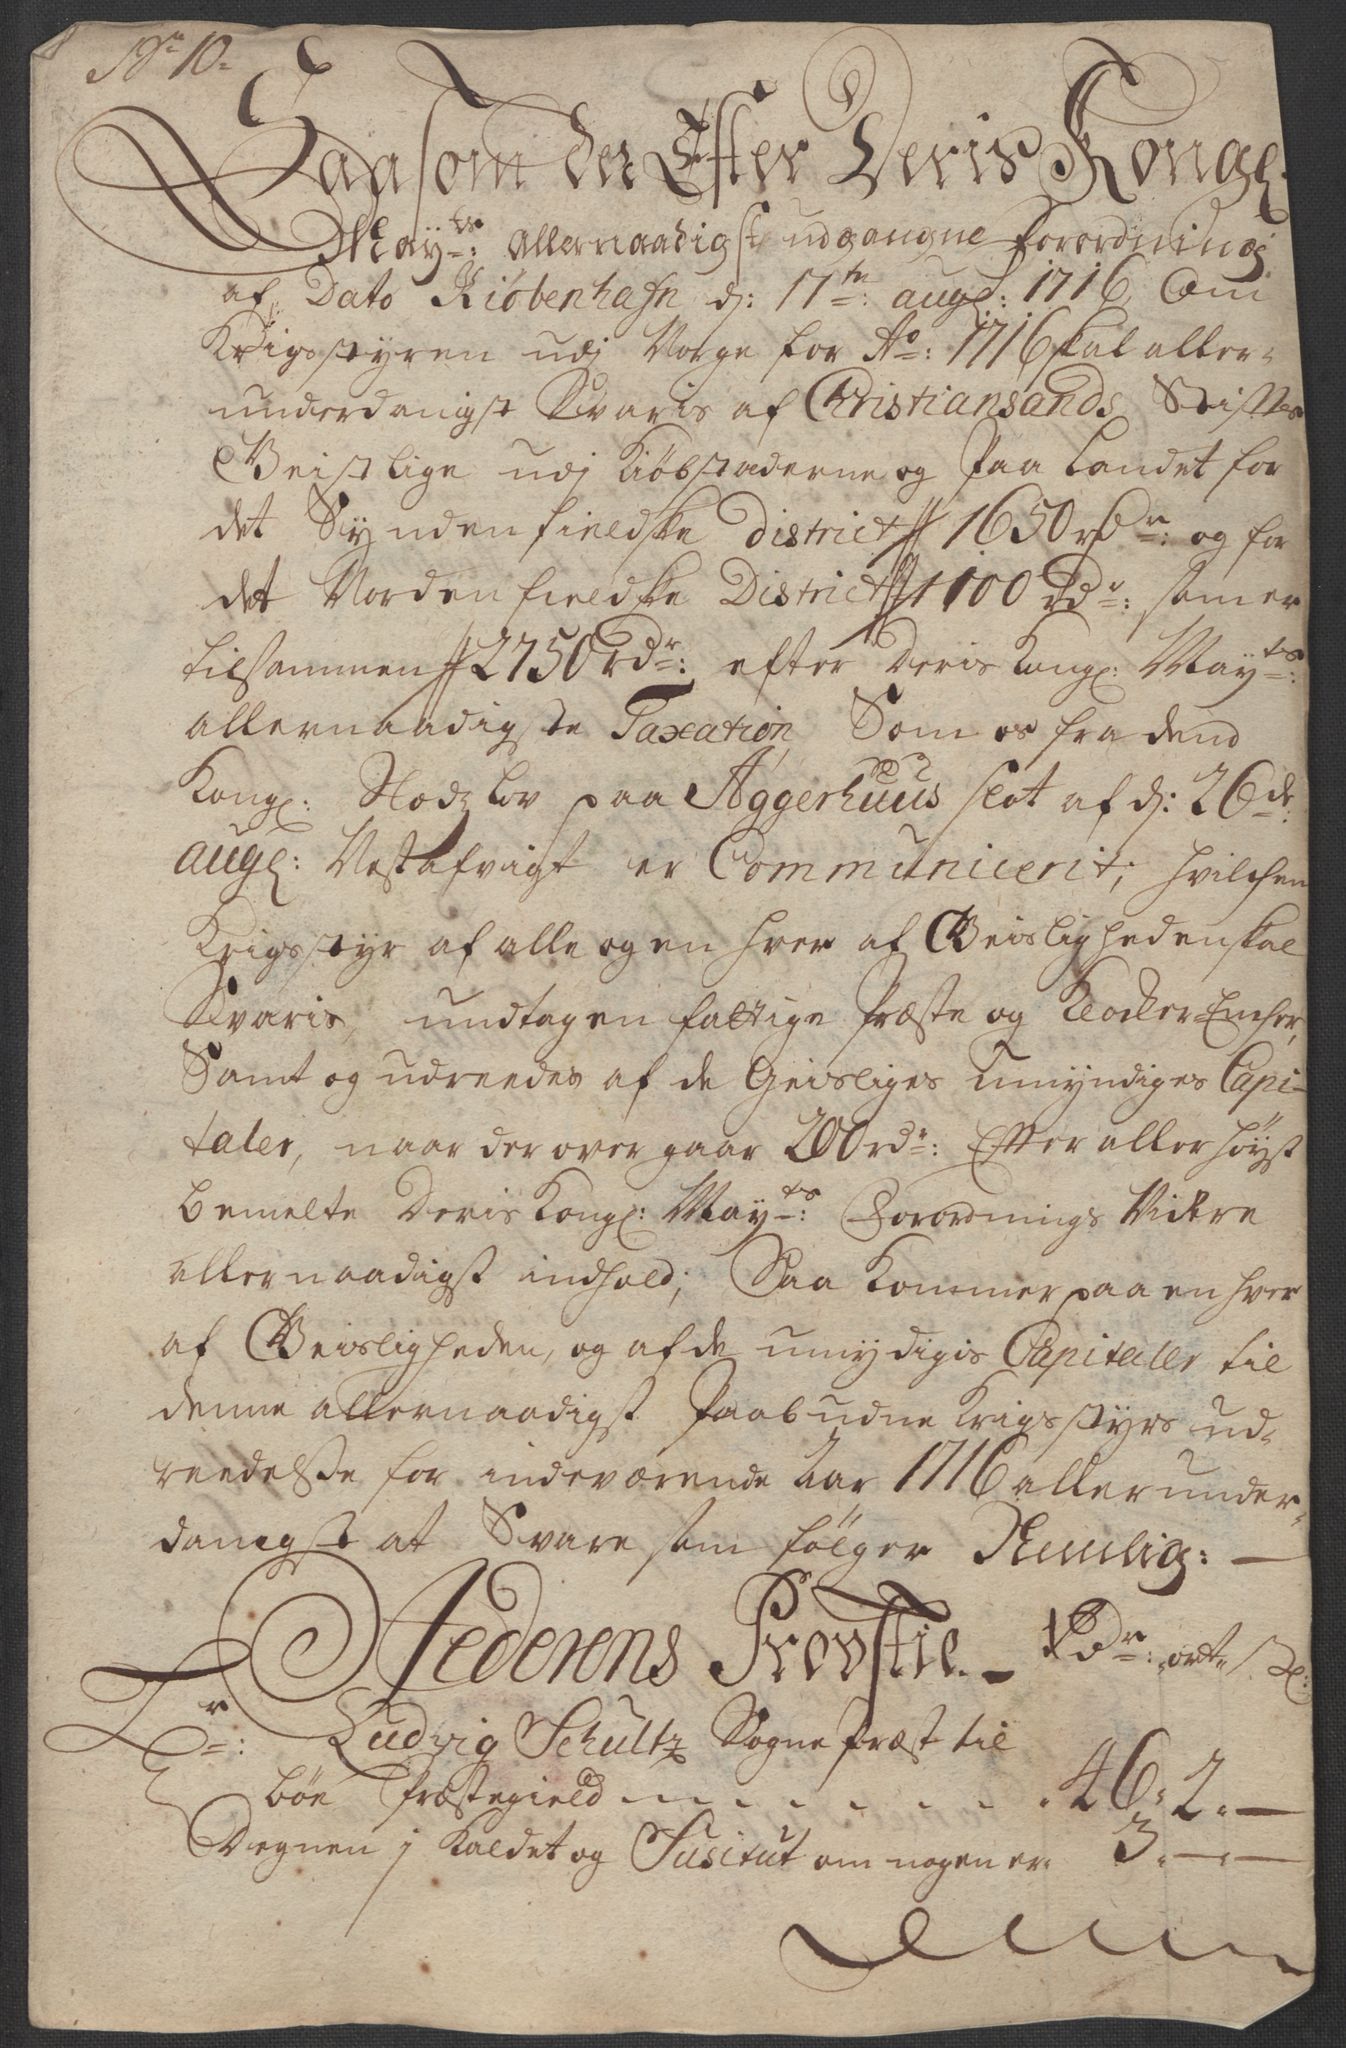 No 10.
Saasom der Efter Deris Kongl:
Mayts: allernaadigste udgangne forordning
af Dato Kiøbenhafn d: 17tn: augl: 1716, Om
Krigsstyren udj Norge for Ao: 1716 skal aller-
underdanigst Svaris af Christiansands Stiftes
Geistlige udj Kiøbstæderne og Paa Landet for
det Syndenfieldske District 1650 rdr: og for
det Nordenfieldske District 1100 Rdr: som er
tilsammen 2750 rdr: efter Deris Kongl: Mayts:
allernaadigste Taxation, Som os fra dend
Kongl: Slodz Lov paa Aggerhuus slot af d: 26de:
augl: Nestafvigt er Communicerit; hvilchen
Krigsstyr af alle og en hver af Geisligheden skal
Svaris, undtagen fattige Præste og Klocker-Encher,
Samt og udreedes af de Geisliges umyndiges Capi-
taler, naar der over gaar 200 rdr: Efter allerhøyst
bemelte Deris Kongl: Mayts: Forordnings Vidre
allernaadigst indhold; Saa Kommer paa en hver
af Geisligheden, og af de umydigis Capitaler til
denne allernaadigst Paabudne Krigsstyrs ud-
reedelse for indeværende Aar 1716 allerunder-
danigst at Svare som følger Nemlig:
Jederens Provstie. Rdr: ort ß:
Er: Ludvig Schultz Sogne Præst til
bøe Præstegield . . . . . . 46 " 2 " —
Degnen j Kaldet og Susitut om nogen er " 3 " — " —